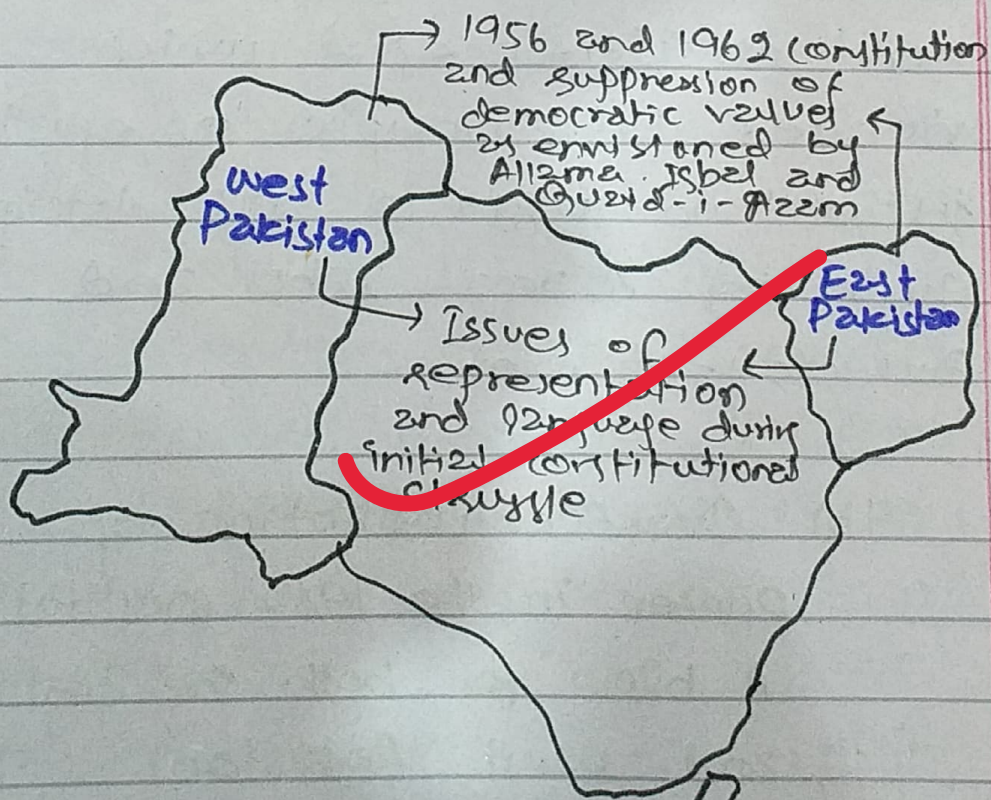 1956 and 1962 Constitution
and suppression of
democratic values
as envisioned by
Allama Iqbal and
Quaid-i-Azam
West
Pakistan
East
Pakistan
Issues of
representation
and language during
initial constitutional
struggle